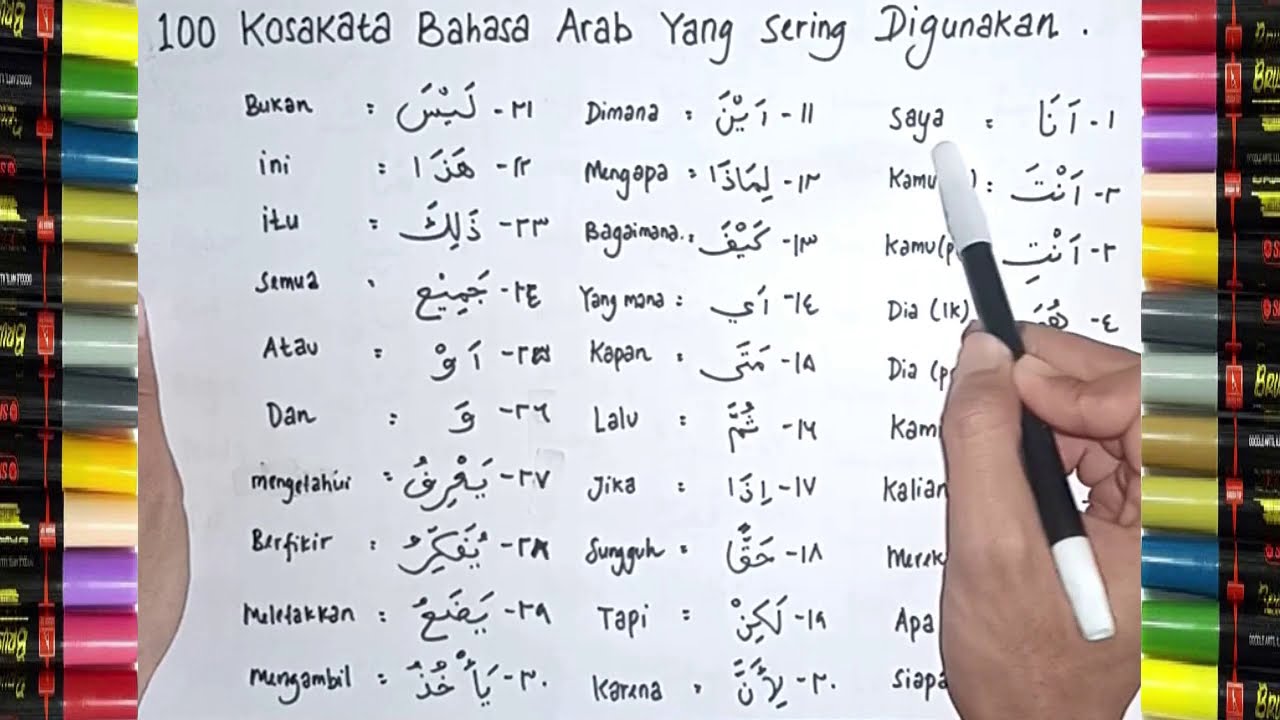 100 Kosakata Bahasa Arab Yang Sering Digunakan .
١- اَنَا = Saya
٢- اَنْتَ : Kamu
٣- اَنْتِ Kamu
٤- Dia (lk)
Dia
Kalian
Apa
Siapa
١١- اَيْنَ : Dimana
١٢- لِمَاذَا = Mengapa
١٣- كَيْفَ : Bagaimana
١٤- اَي : Yang mana
١٥- مَتَى = Kapan
١٦- ثُمَّ : Lalu
١٧- اِذَا : Jika
١٨- حَقًّا = Sungguh
١٩- لَكِنْ : Tapi
٢٠- لِأَنَّ = Karena
٢١- لَيْسَ : Bukan
٢٢- هَذَا : ini
٢٣- ذَلِكَ : itu
٢٤- جَمِيْع Semua
٢٥- اَوْ = Atau
٢٦- وَ : Dan
٢٧- يَعْرِفُ : mengetahui
٢٨- يُفَكِّرُ : Berfikir
٢٩- يَضَعُ : Meletakkan
٣٠- يَأْخُذُ : Mengambil